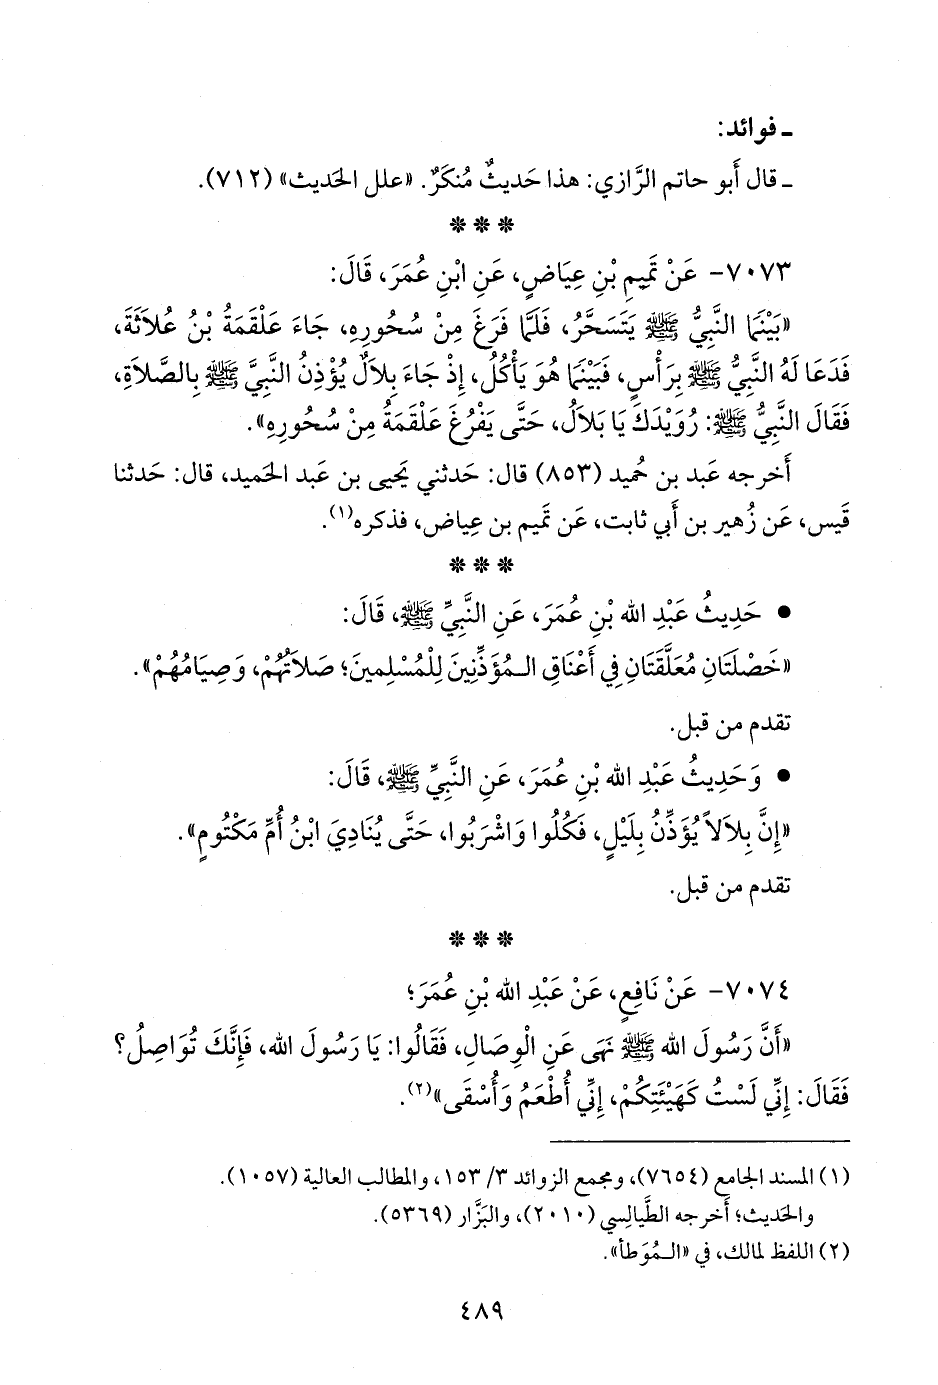 ـ فوائد:
ـ قال أَبو حاتم الرَّازي: هذا حَديثٌ مُنكَرٌ. «علل الحَديث» (٧١٢).
* * *
٧٠٧٣- عَنْ تَمِيمِ بْنِ عِيَاضٍ، عَنِ ابْنِ عُمَرَ، قَالَ:
«بَيْنَمَا النَّبِيُّ ﷺ يَتَسَحَّرُ، فَلَمَّا فَرَغَ مِنْ سُحُورِهِ، جَاءَ عَلْقَمَةُ بْنُ عُلاَثَةَ،
فَدَعَا لَهُ النَّبِيُّ ﷺ بِرَأْسٍ، فَبَيْنَمَا هُوَ يَأْكُلُ، إِذْ جَاءَ بِلاَلٌ يُؤْذِنُ النَّبِيَّ ﷺ بِالصَّلاَةِ،
فَقَالَ النَّبِيُّ ﷺ: رُوَيْدَكَ يَا بِلاَلُ، حَتَّى يَفْرُغَ عَلْقَمَةُ مِنْ سُحُورِهِ».
أَخرجه عَبد بن حُميد (٨٥٣) قال: حَدثني يَحيى بن عَبد الحَميد، قال: حَدثنا
قَيس، عَن زُهير بن أَبي ثابت، عَن تَميم بن عِياض، فذكره(١).
* * *
• حَدِيثُ عَبْدِ الله بْنِ عُمَرَ، عَنِ النَّبِيِّ ﷺ، قَالَ:
«خَصْلَتَانِ مُعَلَّقَتَانِ فِي أَعْنَاقِ الـمُؤَذِّنِينَ لِلْمُسْلِمِينَ؛ صَلاَتُهُمْ، وَصِيَامُهُمْ».
تقدم من قبل.
• وَحَدِيثُ عَبْدِ الله بْنِ عُمَرَ، عَنِ النَّبِيِّ ﷺ، قَالَ:
«إِنَّ بِلاَلاً يُؤَذِّنُ بِلَيْلٍ، فَكُلُوا وَاشْرَبُوا، حَتَّى يُنَادِيَ ابْنُ أُمِّ مَكْتُومٍ».
تقدم من قبل.
* * *
٧٠٧٤- عَنْ نَافِعٍ، عَنْ عَبْدِ الله بْنِ عُمَرَ؛
«أَنَّ رَسُولَ الله ﷺ نَهَى عَنِ الْوِصَالِ، فَقَالُوا: يَا رَسُولَ الله، فَإِنَّكَ تُوَاصِلُ؟
فَقَالَ: إِنِّي لَسْتُ كَهَيْئَتِكُمْ، إِنِّي أُطْعَمُ وَأُسْقَى»(٢).
(١) المسند الجامع (٧٦٥٤)، ومجمع الزوائد ٣/ ١٥٣، والمطالب العالية (١٠٥٧).
والحَديث؛ أخرجه الطَّيالِسي (٢٠١٠)، والبَزَّار (٥٣٦٩).
(٢) اللفظ لمالك، في «الـمُوَطأ».
٤٨٩